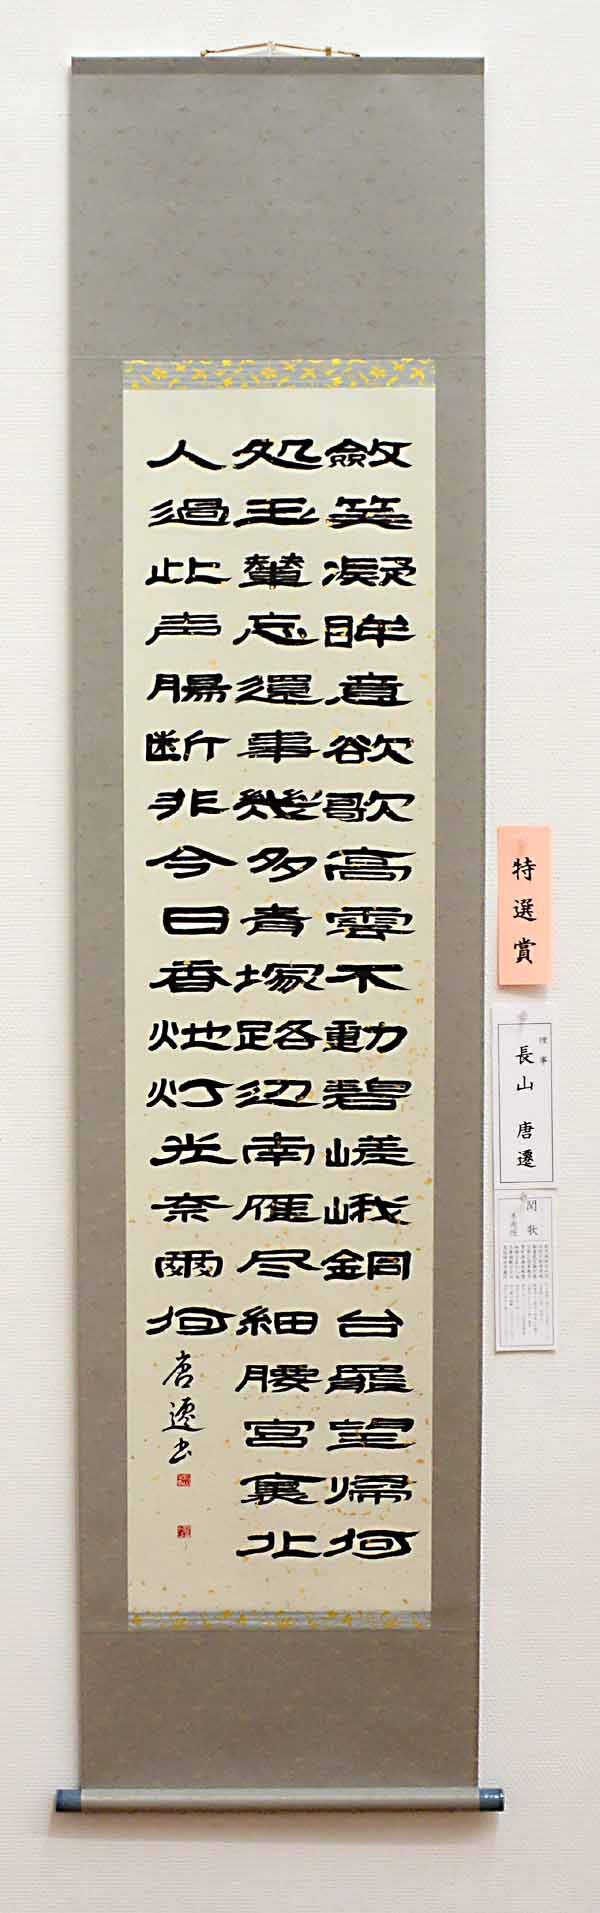 斂笑凝眸意欲歌高雲不動碧嵯峨銅台罷望帰何
処玉輦忘還事幾多青塚路辺南雁尽細腰宮裏北
人過此声腸断非今日香灺灯光奈爾何
唐遷書
特選賞
理事
長山 唐遷
聞歌
李商隠